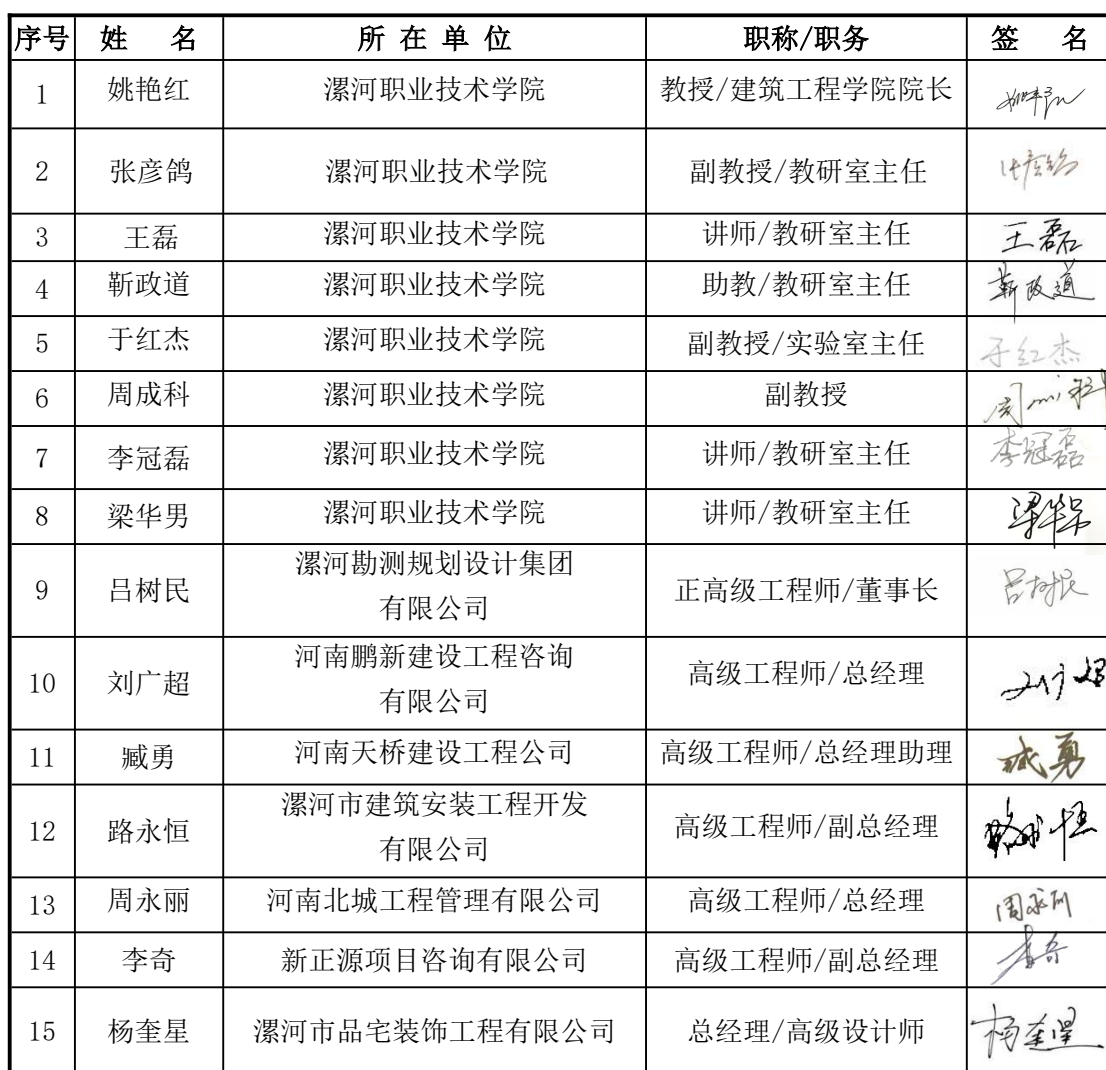 序号 姓 名 所 在 单 位 职称/职务 签 名
1 姚艳红 漯河职业技术学院 教授/建筑工程学院院长 姚艳红
2 张彦鸽 漯河职业技术学院 副教授/教研室主任 张彦鸽
3 王磊 漯河职业技术学院 讲师/教研室主任 王磊
4 靳政道 漯河职业技术学院 助教/教研室主任 靳政道
5 于红杰 漯河职业技术学院 副教授/实验室主任 于红杰
6 周成科 漯河职业技术学院 副教授
7 李冠磊 漯河职业技术学院 讲师/教研室主任 李冠磊
8 梁华男 漯河职业技术学院 讲师/教研室主任
9 吕树民 漯河勘测规划设计集团
有限公司 正高级工程师/董事长
10 刘广超 河南鹏新建设工程咨询
有限公司 高级工程师/总经理 刘广超
11 臧勇 河南天桥建设工程公司 高级工程师/总经理助理 臧勇
12 路永恒 漯河市建筑安装工程开发
有限公司 高级工程师/副总经理 路永恒
13 周永丽 河南北城工程管理有限公司 高级工程师/总经理 周永丽
14 李奇 新正源项目咨询有限公司 高级工程师/副总经理 李奇
15 杨奎星 漯河市品宅装饰工程有限公司 总经理/高级设计师 杨奎星